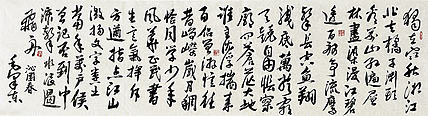 獨立寒秋湘江
北去橘子洲頭
林盡染漫江碧
透百舸爭流鷹
擊長空魚翔
淺底萬類霜
天競自由悵寥
廓問蒼茫大地
誰主沉浮攜來
百侶曾遊憶往
昔崢嶸歲月稠
恰同學少年
風華正茂書
生意氣揮斥
方遒指點江山
激揚文字糞土
當年萬戶侯
曾記否到中
流擊水浪遏
飛舟
沁園春
毛澤東